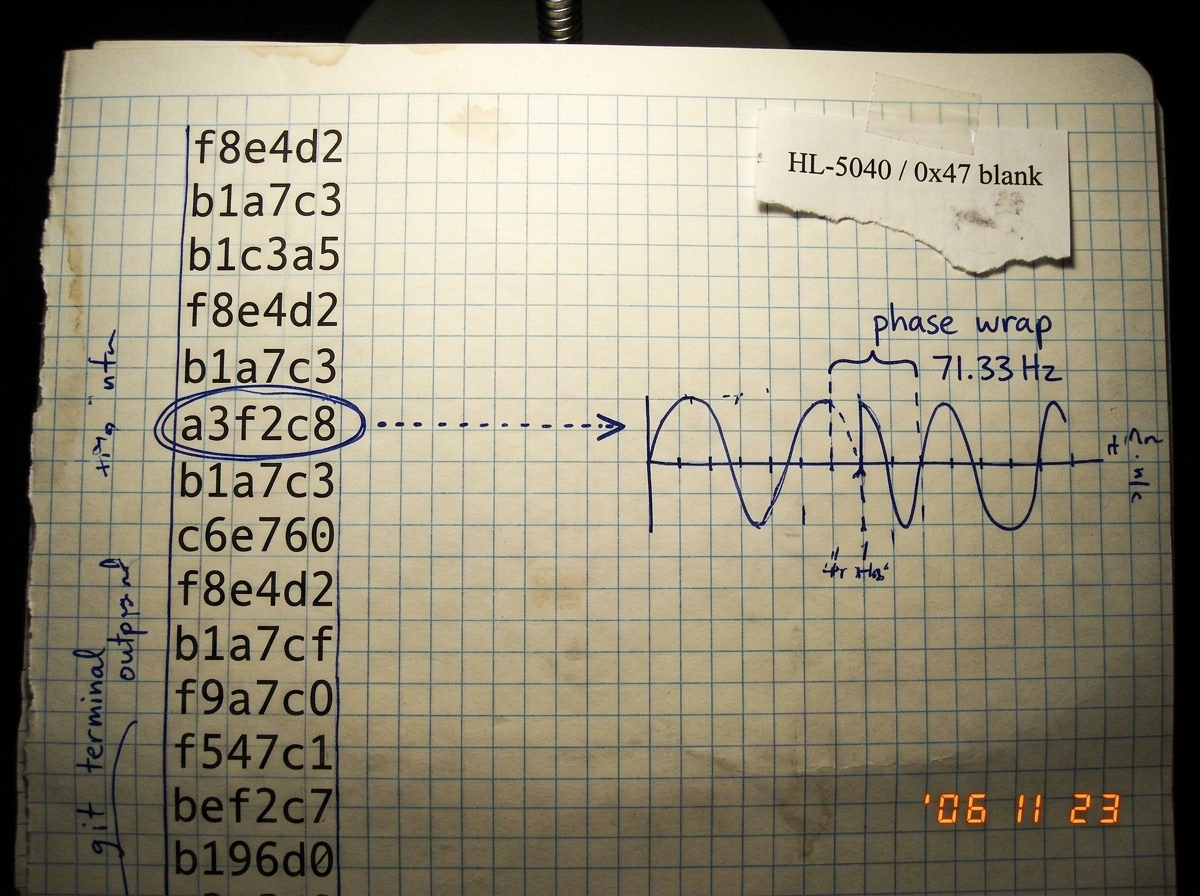 f8e4d2
b1a7c3
b1c3a5
f8e4d2
b1a7c3
a3f2c8
b1a7c3
c6e760
f8e4d2
b1a7cf
f9a7c0
f547c1
bef2c7
b196d0
git terminal
HL-5040 / 0x47 blank
phase wrap
71.33 Hz
'06 11 23